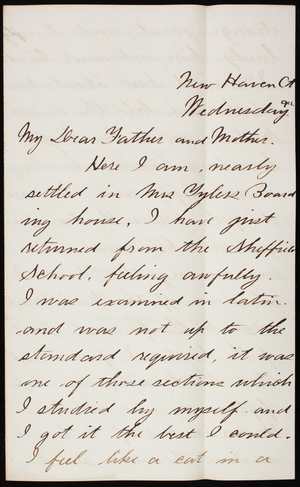 New Haven Ct
Wednesday
My Dear Father and Mother.
Here I am, nearly
settled in Mrs Tylers Board
ing house, I have just
returned from the Sheffield
School, feeling awfully.
I was examined in latin
and was not up to the
standard required, it was
one of those sections which
I studied by myself and
I got it the best I could.
I feel like a cat in a